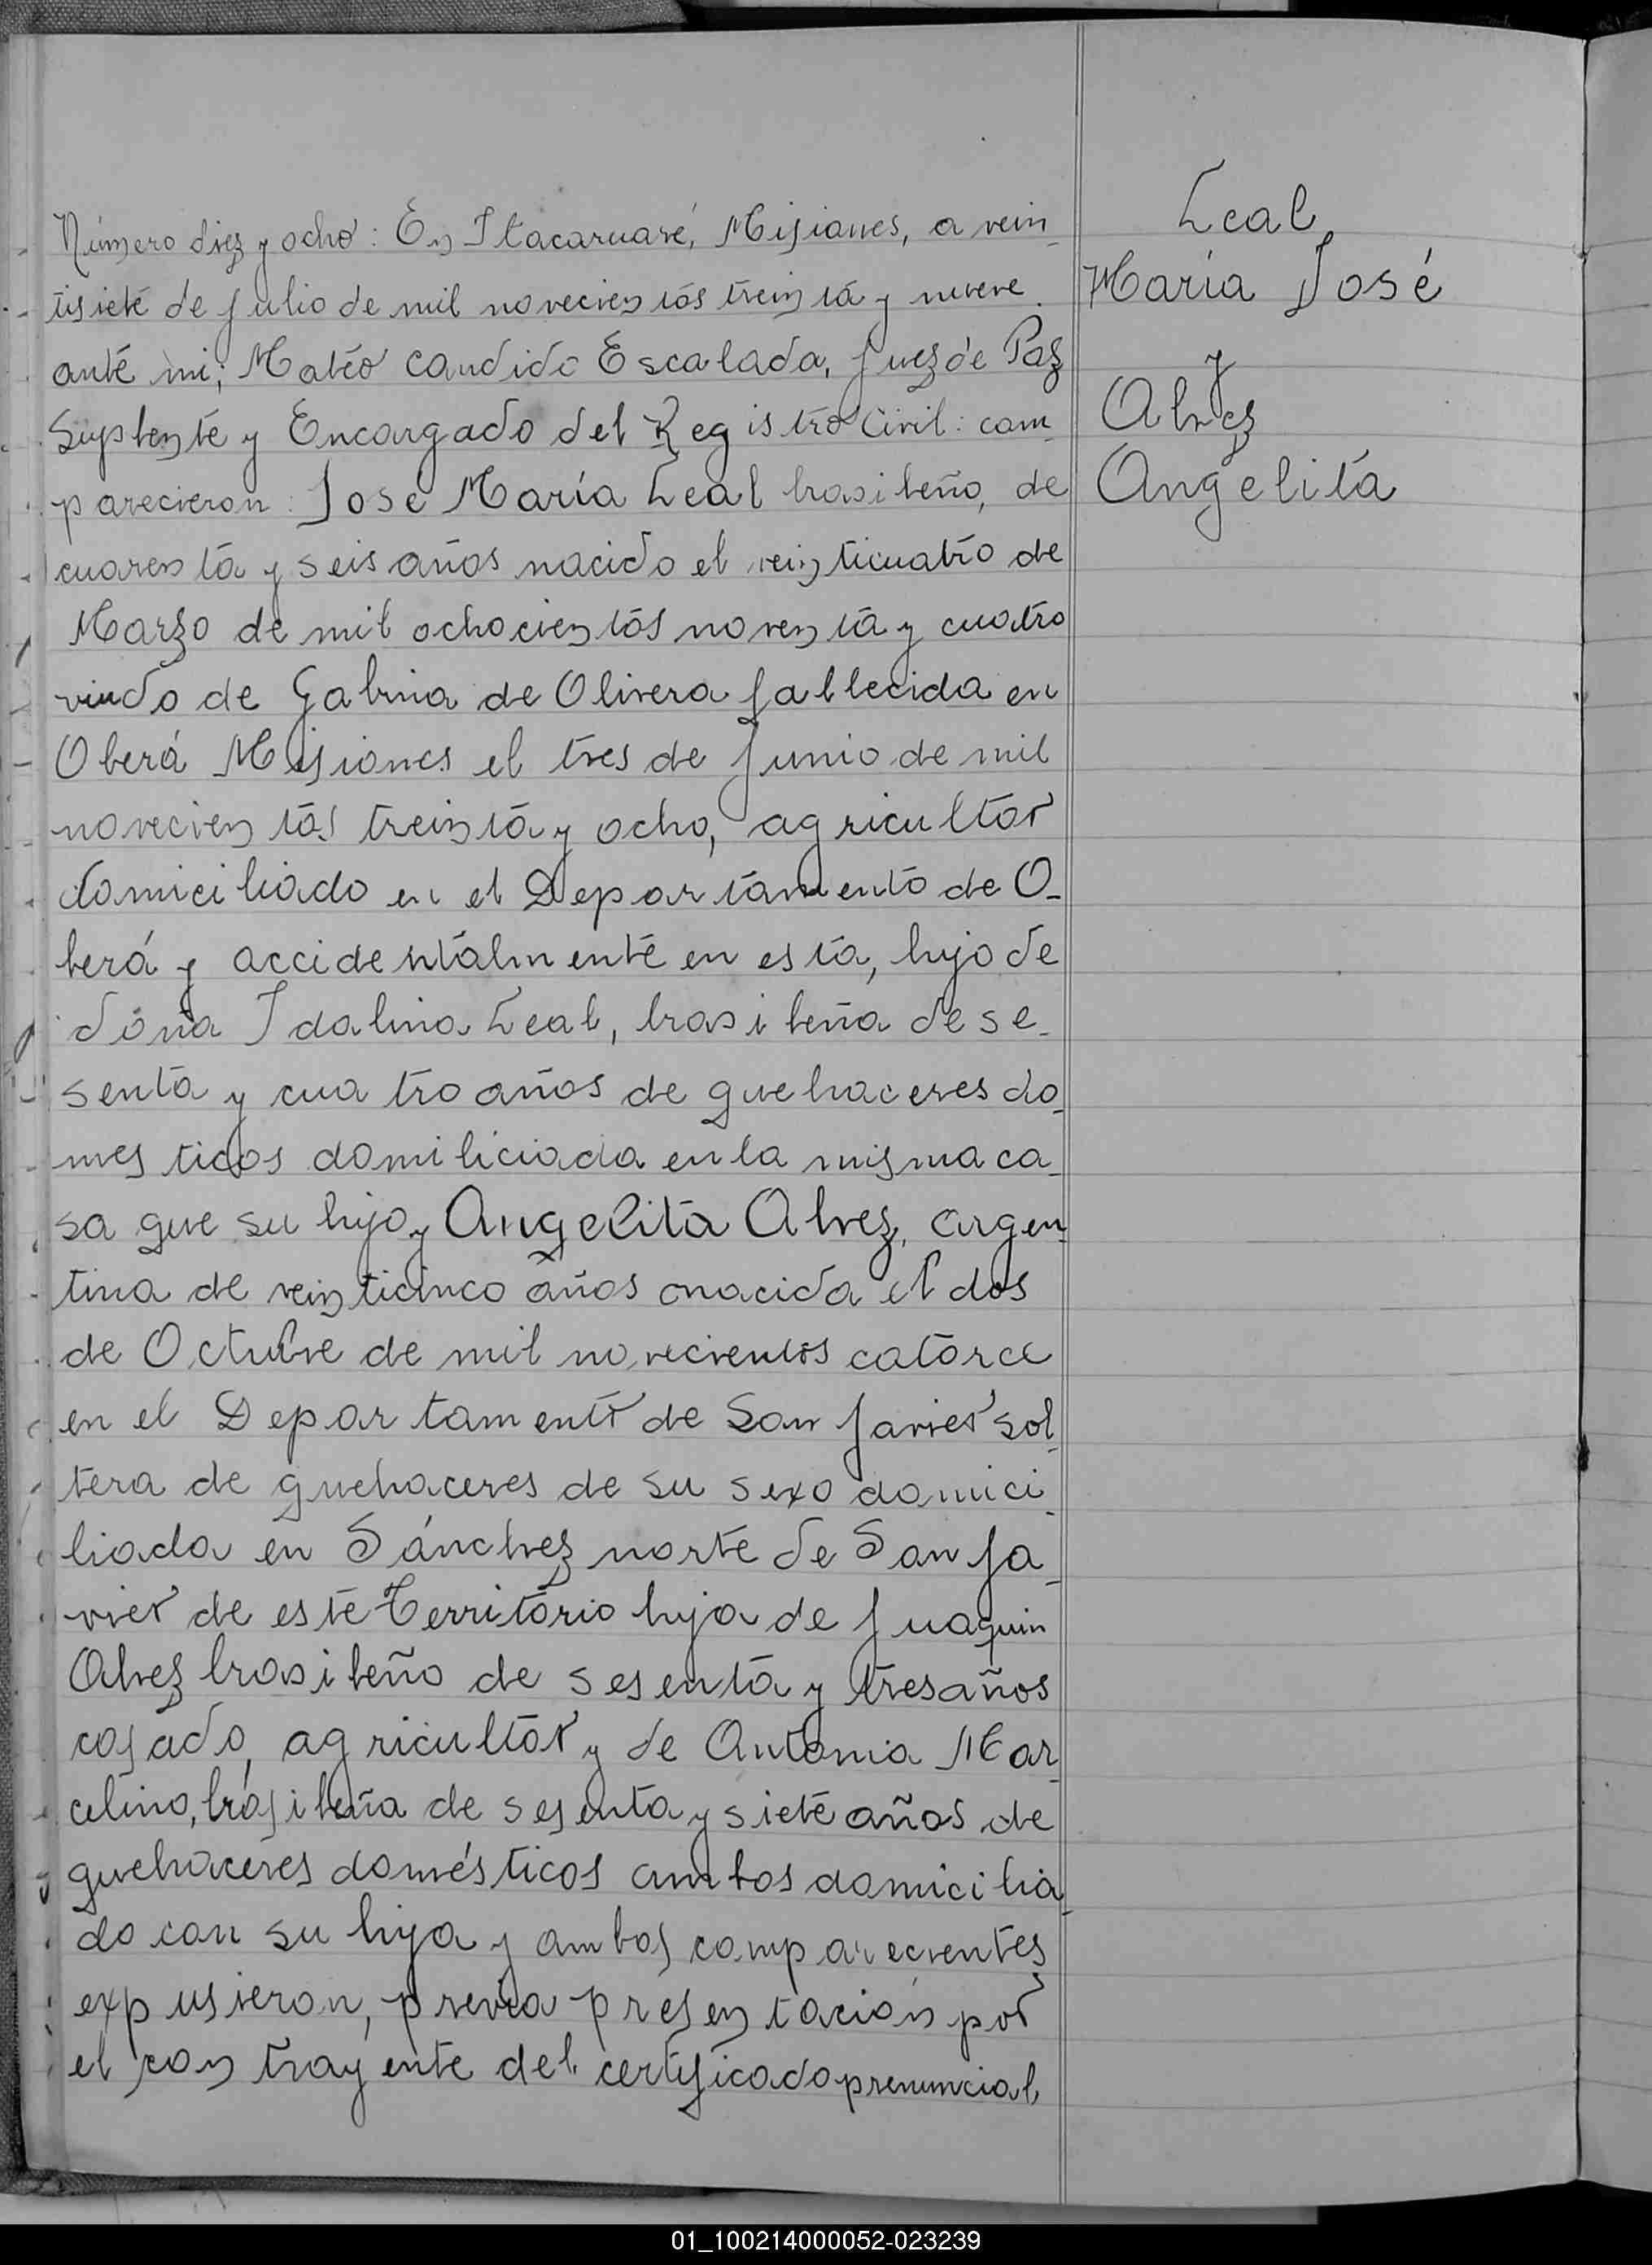 Número diez y ocho: En Itacaruaré, Misiones, a vein_
tisiete de Julio de mil novecientos treinta y nueve.
ante mi; Matéo Candido Escalada, Juez de Paz
Suplente y Encargado del Registro Civil: com_
parecieron: José María Leal brasileño, de
cuarenta y seis años nacido el veinticuatro de
Marzo de mil ochocientos noventa y cuatro
viudo de Galvina de Olivera fallecida en
Oberá Misiones el tres de Junio de mil
novecientos treinta y ocho, agricultor
domiciliado en el Departamento de O_
berá y accidentalmente en esta, hijo de
doña Idalina Leal, brasileña de se_
senta y cuatro años de quehaceres do_
mesticos domiliciada en la misma ca_
sa que su hijo y Angelita Alvez, argen_
tina de veinticinco años nacida el dos
de Octubre de mil novecientos catorce
en el Departamento de San Javier sol_
tera de quehaceres de su sexo domici_
liada en Sánchez norte de San Ja_
vier de este Territorio hija de Juaquin
Alvez brasileño de sesenta y tres años
casado, agricultor y de Antonia Mar_
celino, brasileña de sesenta y siete años de
quehaceres domésticos ambos domicilia_
do con su hija y ambos comparecientes
expusieron, previa presentación por
el contrayente del certificado prenuncial
Leal
María José
y
Alvez
Angelita
01_100214000052-023239